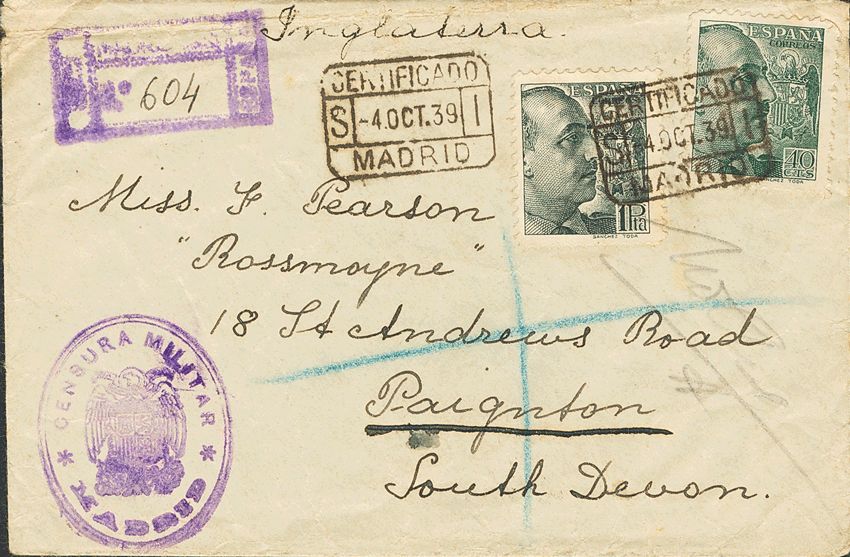 Inglaterra.
Nº 604
CERTIFICADO
S -4.OCT.39 I
MADRID
ESPAÑA
1 Pta
SANCHEZ TODA
ESPAÑA
CORREOS
40
CTS
SANCHEZ TODA
CERTIFICADO
S -4.OCT.39 I
MADRID
Miss. F. Pearson
"Rossmoyne"
18 St Andrews Road
Paignton
South Devon.
* CENSURA MILITAR *
MADRID